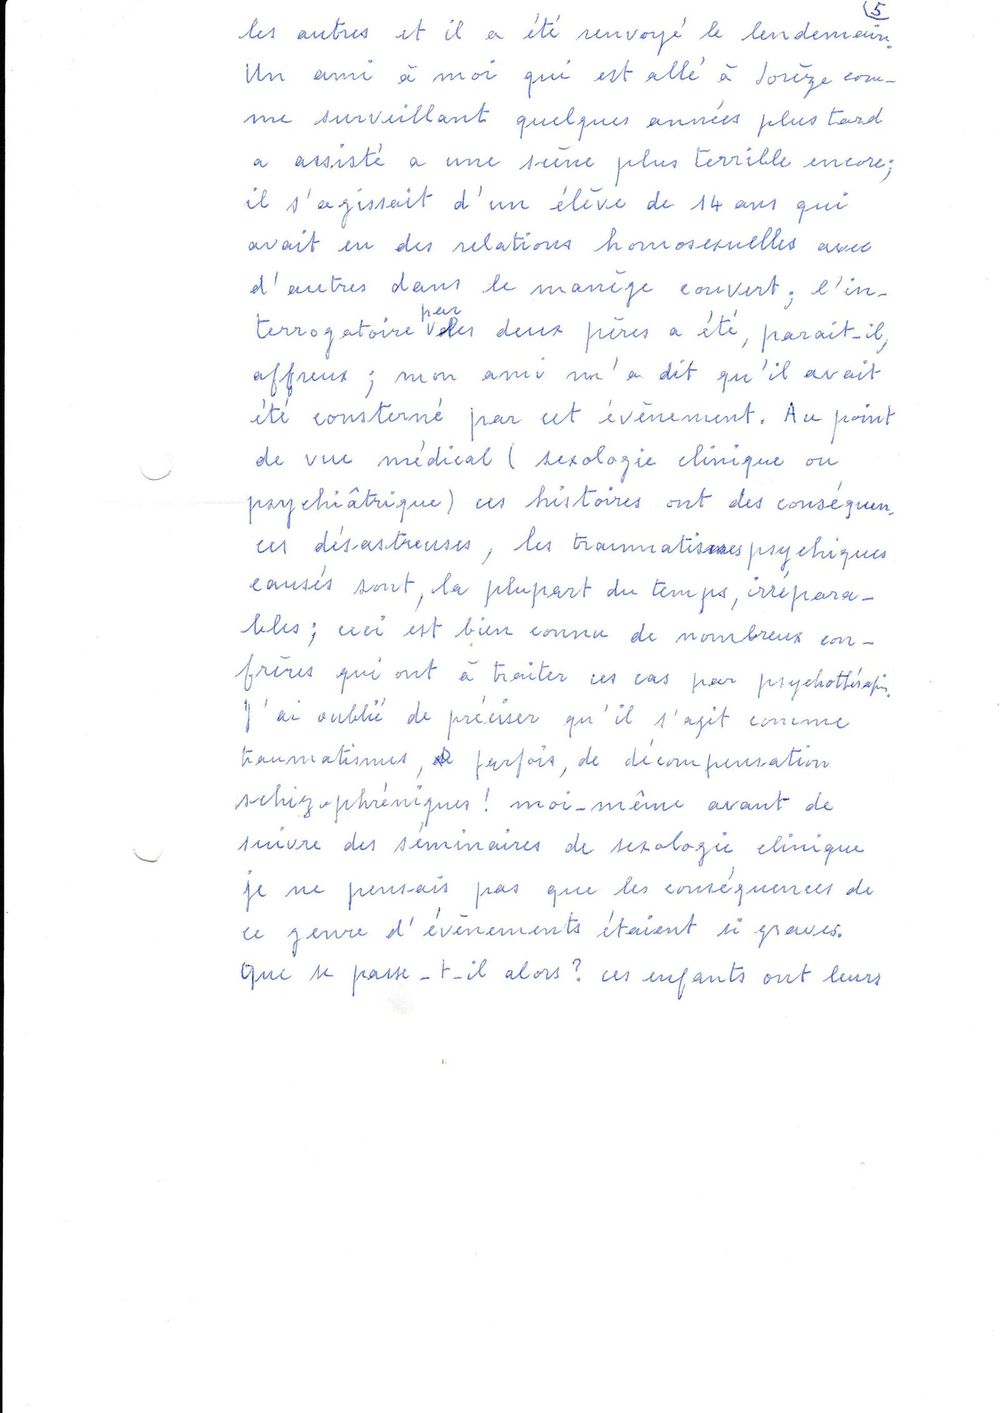 5
les autres et il a été renvoyé le lendemain.
Un ami à moi qui est allé à Sorèze com-
me surveillant quelques années plus tard
a assisté a une scène plus terrible encore;
il s'agissait d'un élève de 14 ans qui
avait eu des relations homosexuelles avec
d'autres dans le manège couvert; l'in-
terrogatoire par les deux pères a été, parait-il,
affreux; mon ami m'a dit qu'il avait
été consterné par cet évènement. Au point
de vue médical (sexologie clinique ou
psychiâtrique) ces histoires ont des conséquen-
ces désastreuses, les traumatismes psychiques
causés sont, la plupart du temps, irrépara-
bles; ceci est bien connu de nombreux con-
frères qui ont à traiter ces cas par psychothérapie.
J'ai oublié de préciser qu'il s'agit comme
traumatismes, parfois, de décompensation
schizophréniques! moi-même avant de
suivre des séminaires de sexologie clinique
je ne pensais pas que les conséquences de
ce genre d'évènements étaient si graves.
Que se passe-t-il alors? ces enfants ont leurs